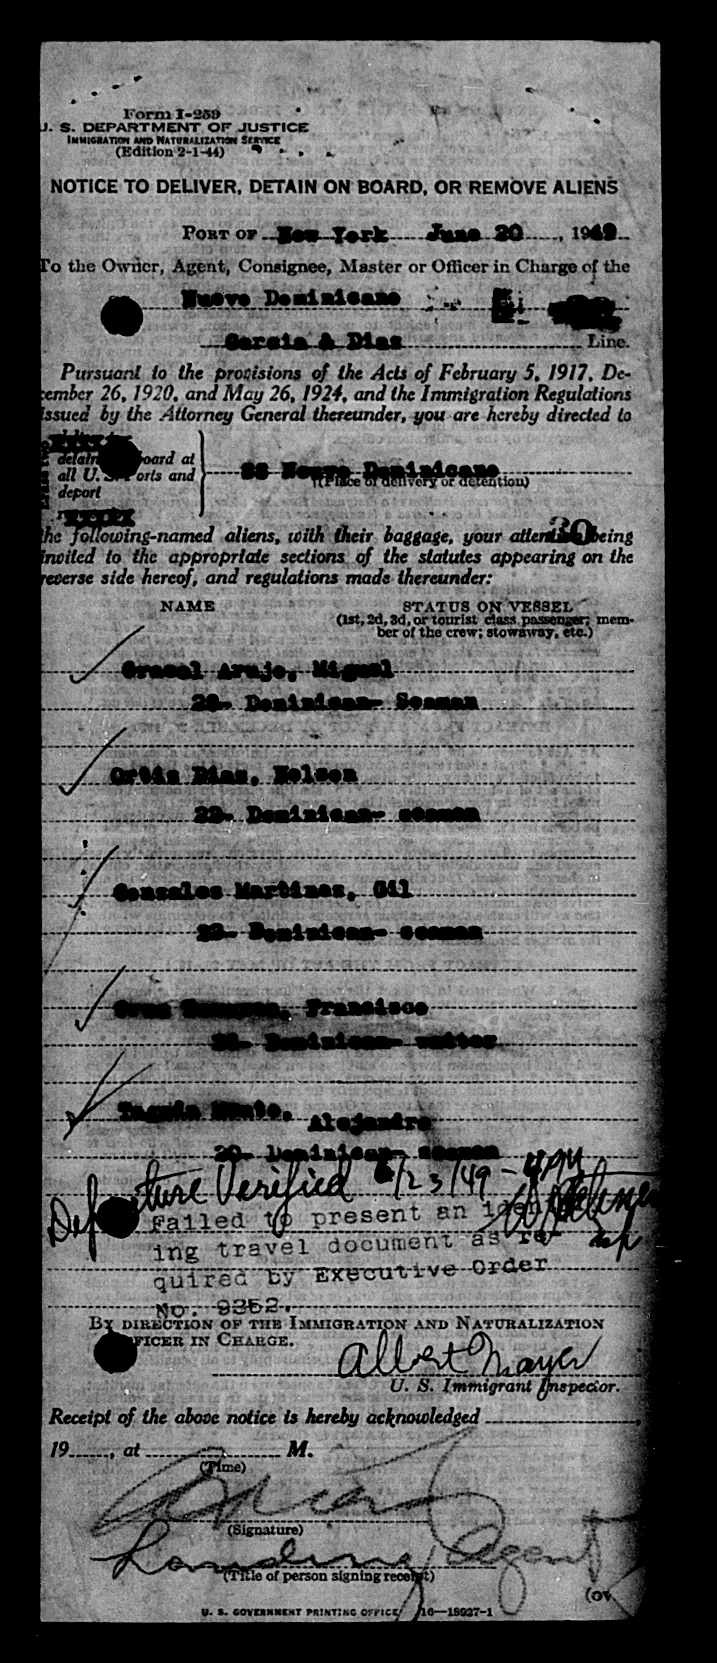 Form I-259
U. S. DEPARTMENT OF JUSTICE
IMMIGRATION AND NATURALIZATION SERVICE
(Edition 2-1-44)
NOTICE TO DELIVER, DETAIN ON BOARD, OR REMOVE ALIENS
PORT OF New York June 20, 1949
To the Owner, Agent, Consignee, Master or Officer in Charge of the
Nuevo Dominicano
Garcia & Diaz Line.
Pursuant to the provisions of the Acts of February 5, 1917, De-
cember 26, 1920, and May 26, 1924, and the Immigration Regulations
issued by the Attorney General thereunder, you are hereby directed to
detain board at
all U. S. Ports and
deport
SS Nuevo Dominicano
(Place of delivery or detention)
30
the following-named aliens, with their baggage, your attention being
invited to the appropriate sections of the statutes appearing on the
reverse side hereof, and regulations made thereunder:
NAME STATUS ON VESSEL
(1st, 2d, 3d, or tourist class passenger; mem-
ber of the crew; stowaway, etc.)
Araujo, Miguel
Dominican- Seaman
Diaz, Nelson
22- Dominican- seaman
Gonzales Martinez, Gil
22- Dominican- seaman
Francisco
Dominican- waiter
Alejandro
20- Dominican- seaman
Departure Verified 6/23/49 -
Failed to present an
ing travel document as re-
quired by Executive Order
No. 9352.
BY DIRECTION OF THE IMMIGRATION AND NATURALIZATION
OFFICER IN CHARGE.
Albert Mayer
U. S. Immigrant Inspector.
Receipt of the above notice is hereby acknowledged
19 , at M.
(Time)
(Signature)
Landing Agent
(Title of person signing receipt)
U. S. GOVERNMENT PRINTING OFFICE 16—18027-1